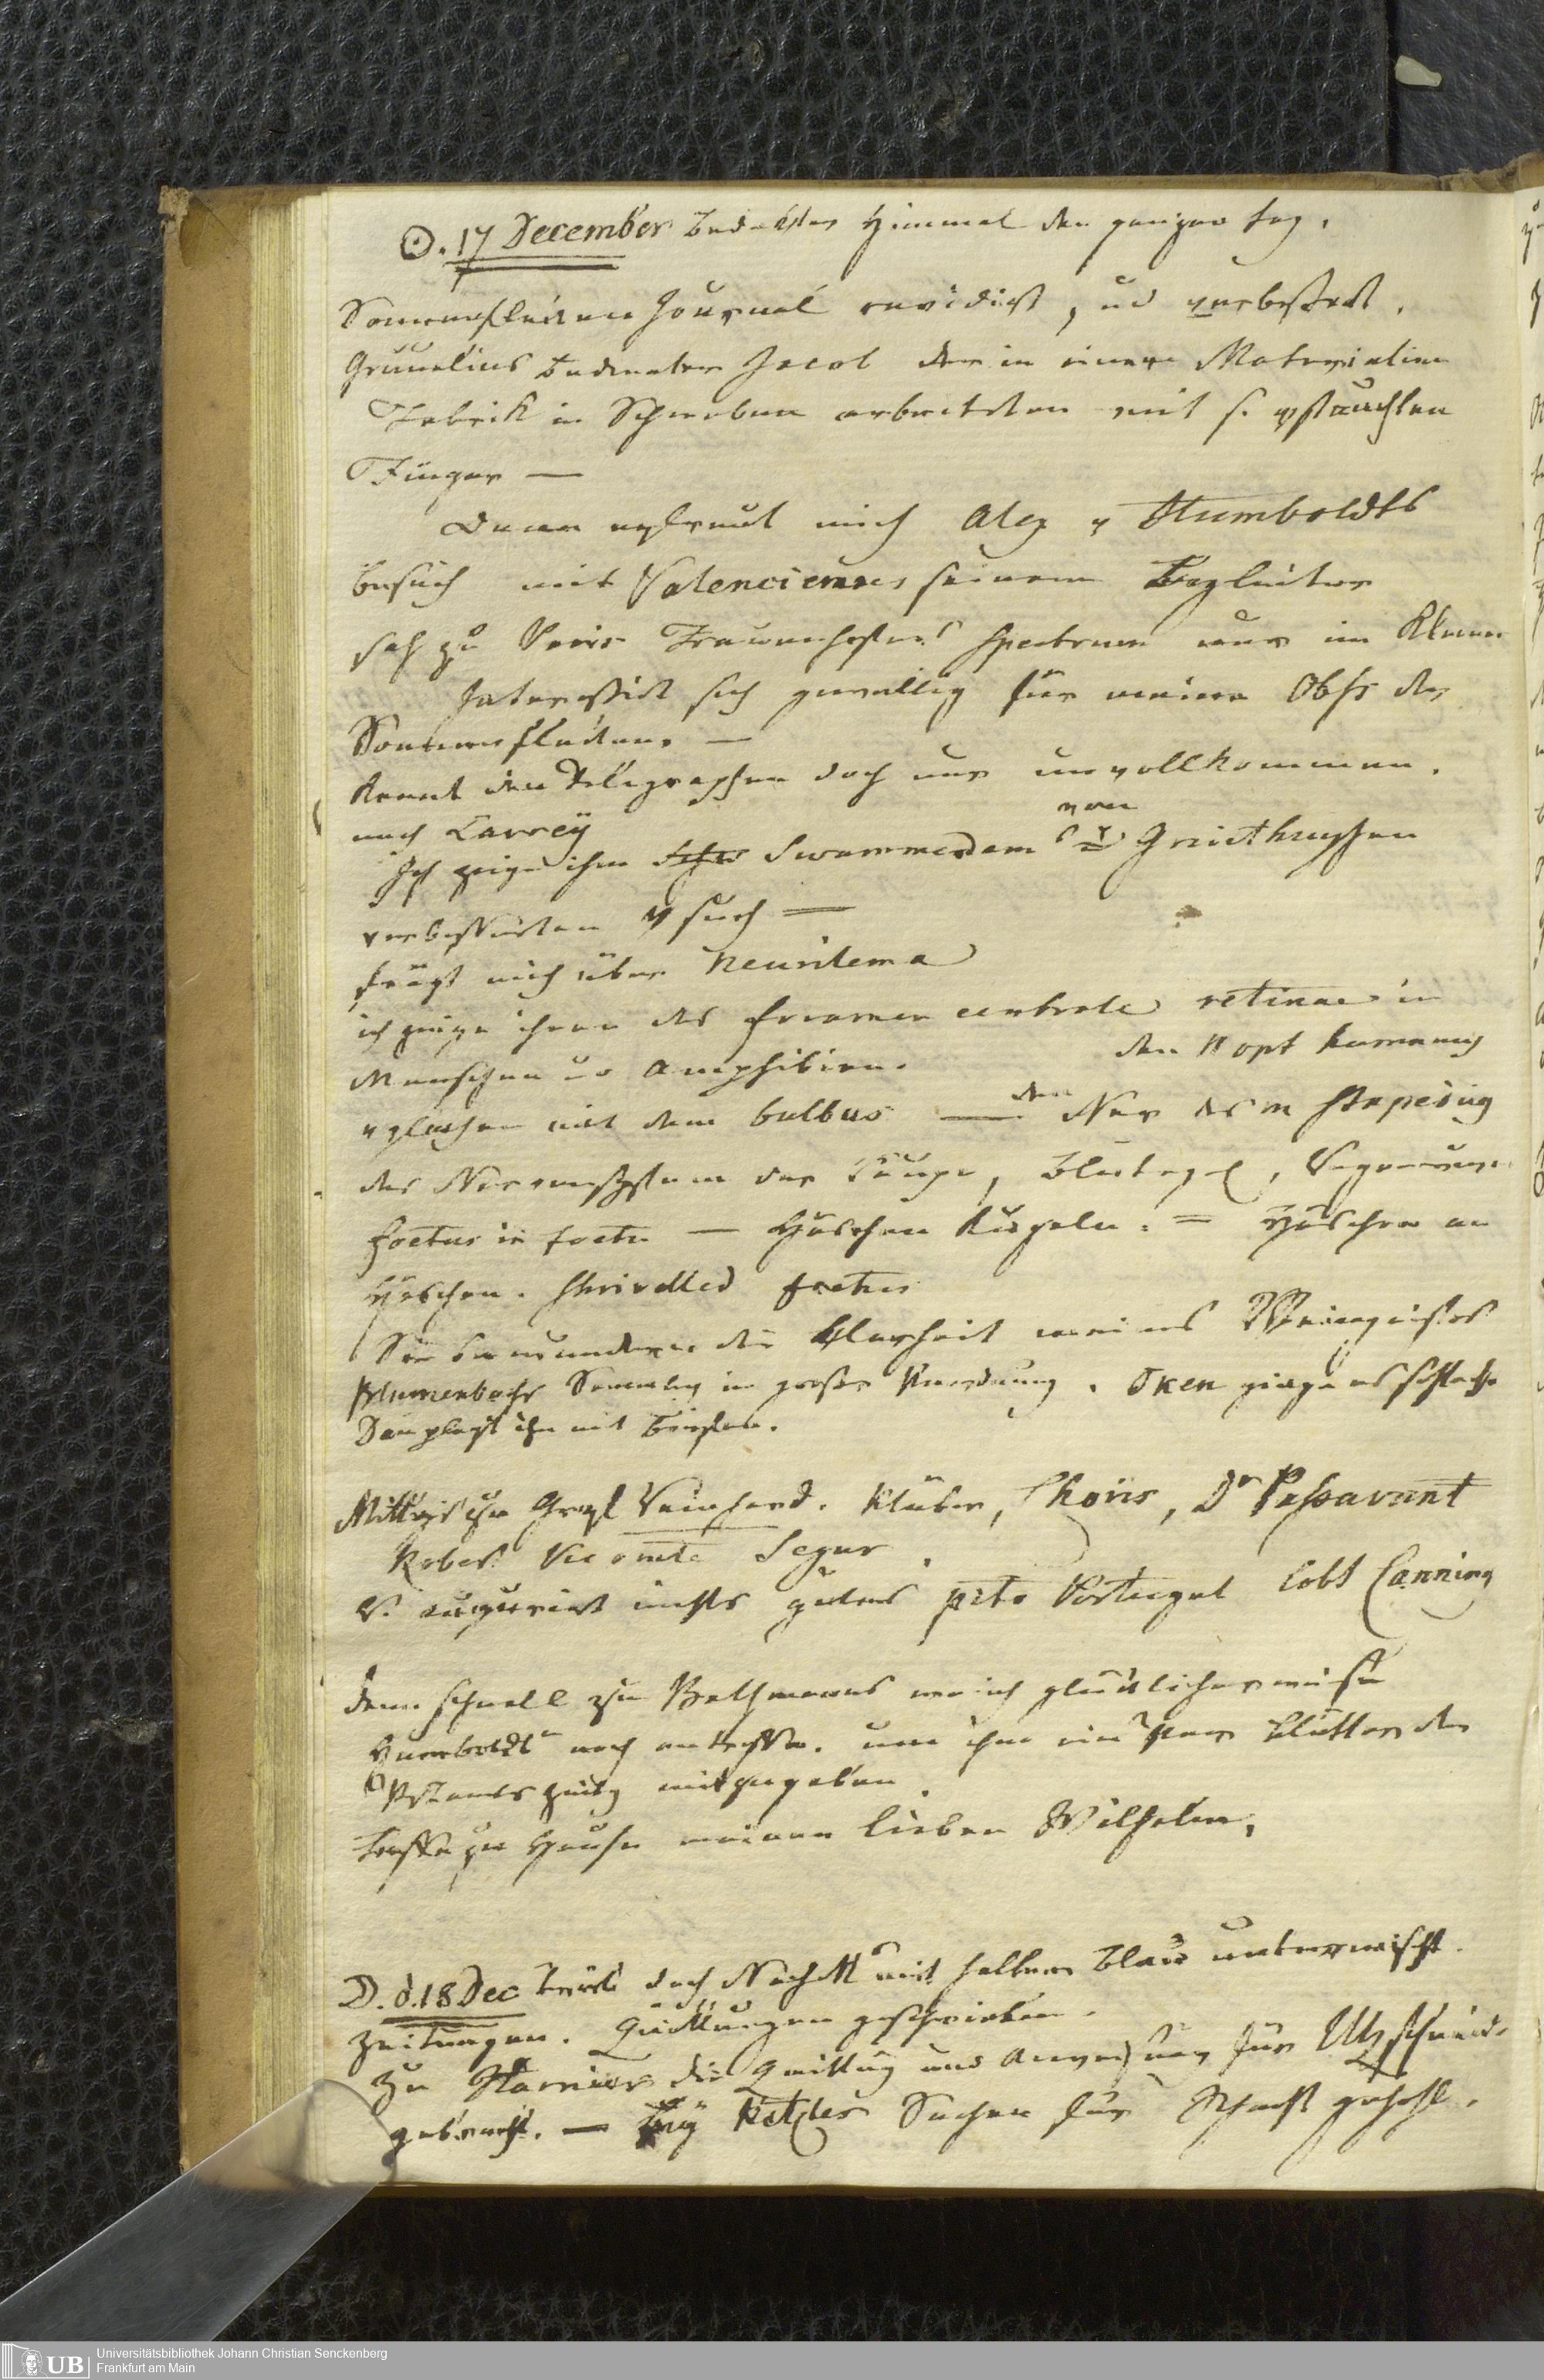 ☉. 17 December bedekter Himmel den ganzen Tag.
Sonnenflecken Journal revidirt, und verbessert.
Grunelius Bedienter Jacob der in einer Materialien
Fabrik in Schwaben arbeitete mit s. verstauchten
Finger —
Dann erfreut mich Alex v Humboldts
Besuch mit Valenciennes seinem Begleiter
sah zu Paris Frauenhofers Spectrum nur im Kleinen
Interessirt sich gewaltig für meine Obss der
Sonnenflecken. —
Kennt den Telegraphen doch nur unvollkommen.
nach Larrey
Ich zeige ihm Swammerdam's von Gruithuysen
verbesserten Vsuch —
frägt mich über Neurilema
ich zeige ihnen das foramen centrale retinae in
Menschen u Amphibien. den N opt humanus
vglichen mit dem bulbus — den Nerv des m stapedius
das Nervensystem der Raupe, Blutegel,
foetus in foetu — Häschen Kugeln. = Häschen an
Häschen. shrivelled foetus
Sie bewundern die Klarheit meines Weingeistes
Blumenbachs Samml. in großer Unordnung. Oken ginge es schlecht
Mittags zu Graf Reinhard. Klüber, Choris, Dr Passavant
Vicomte Segur
R. augurirt nichts gutes pcto Portugal lobt Canning
dann schnell zu Bethmanns wo ich glücklicherweise
Humboldt noch antreffe. um ihm ein Paar Blätter der
OPstamtszeitg mitzugeben.
treffe zu Hause meinen lieben Wilhelm,
☽. d. 18 Dec trüb doch NachM mit hellem Blau untermischt.
Zeitungen. Quittungen geschrieben.
zu die Quittung und Anweisung für Utzschneider
gebracht. — Bey Sachen für geholt.
Universitätsbibliothek Johann Christian Senckenberg
Frankfurt am Main
UB